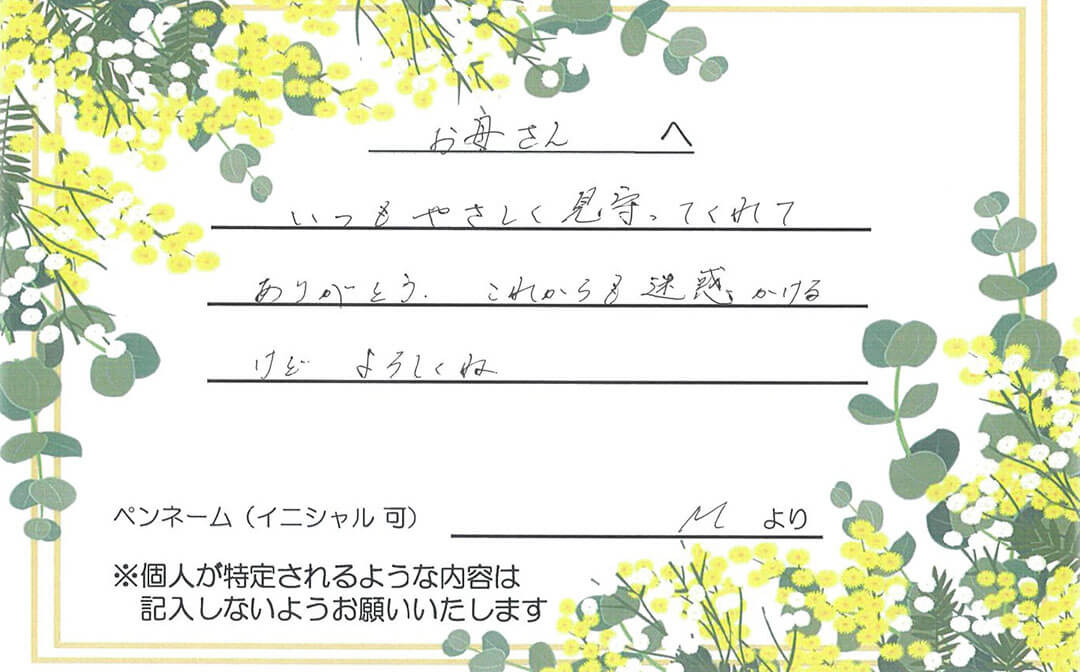 お母さん へ
いつもやさしく見守ってくれて
ありがとう. これからも迷惑かける
けど よろしくね
ペンネーム（イニシャル 可） M より
※個人が特定されるような内容は
記入しないようお願いいたします